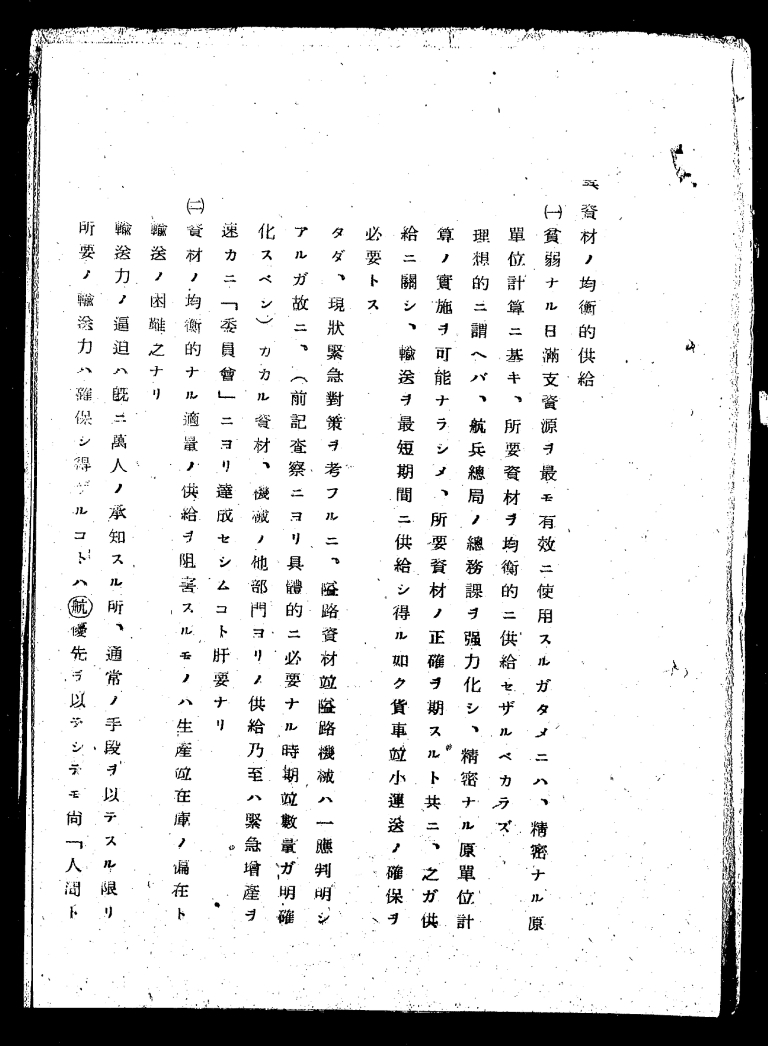 五、資材ノ均衡的供給
㈠貧弱ナル日滿支資源ヲ最モ有效ニ使用スルガタメニハ、精密ナル原
單位計算ニ基キ、所要資材ヲ均衡的ニ供給セザルベカラズ
理想的ニ謂ヘバ、航兵總局ノ總務課ヲ强力化シ、精密ナル原單位計
算ノ實施ヲ可能ナラシメ、所要資材ノ正確ヲ期スルト共ニ、之ガ供
給ニ關シ、輸送ヲ最短期間ニ供給シ得ル如ク貨車竝小運送ノ確保ヲ
必要トス
タダ、現狀緊急對策ヲ考フルニ、隘路資材竝隘路機械ハ一應判明シ
アルガ故ニ、（前記査察ニヨリ具體的ニ必要ナル時期竝數量ガ明確
化スベシ）カカル資材、機械ノ他部門ヨリノ供給乃至ハ緊急增產ヲ
速カニ「委員會」ニヨリ達成セシムコト肝要ナリ
㈡資材ノ均衡的ナル適量ノ供給ヲ阻害スルモノハ生產竝在庫ノ偏在ト
輸送ノ困難之ナリ
輸送力ノ逼迫ハ旣ニ萬人ノ承知スル所、通常ノ手段ヲ以テスル限リ
所要ノ輸送力ハ確保シ得ザルコトハ㊥航優先ヲ以テシテモ尙「人間ト